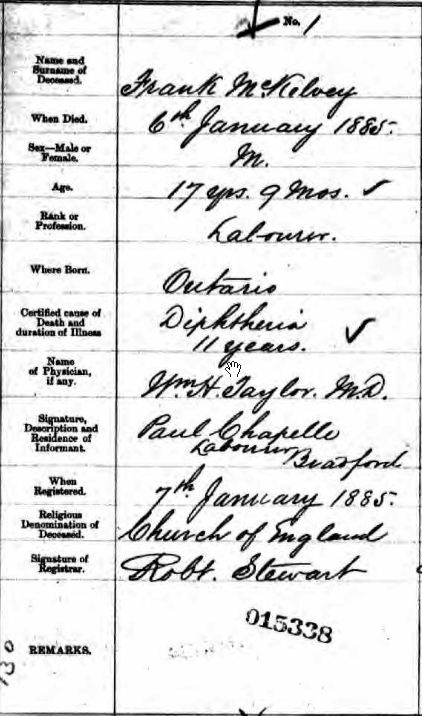 No. 1
Name and
Surname of
Deceased.
Frank McKelvey
When Died.
6th January 1885.
Sex—Male or
Female.
M.
Age.
17 yrs. 9 Mos.
Rank or
Profession.
Labourer.
Where Born.
Ontario
Certified cause of
Death and
duration of Illness
Diphtheria
11 years.
Name
of Physician,
if any.
Wm. H. Taylor. M.D.
Signature,
Description and
Residence of
Informant.
Paul Chapelle
Labourer
Bradford
When
Registered.
7th January 1885.
Religious
Denomination of
Deceased.
Church of England
Signature of
Registrar.
Robt. Stewart
015338
REMARKS.